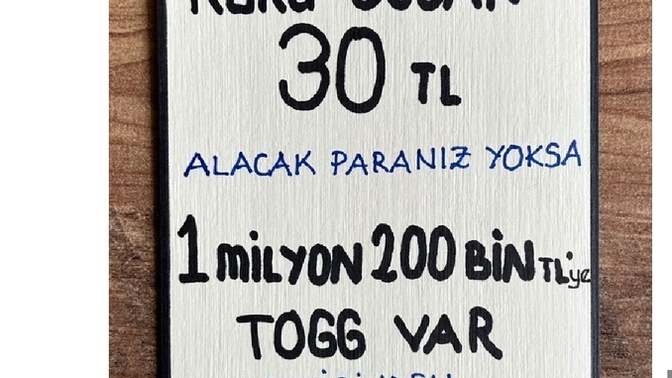 KURU SOĞAN
30 TL
ALACAK PARANIZ YOKSA
1 MİLYON 200 BİN TL'ye
TOGG VAR